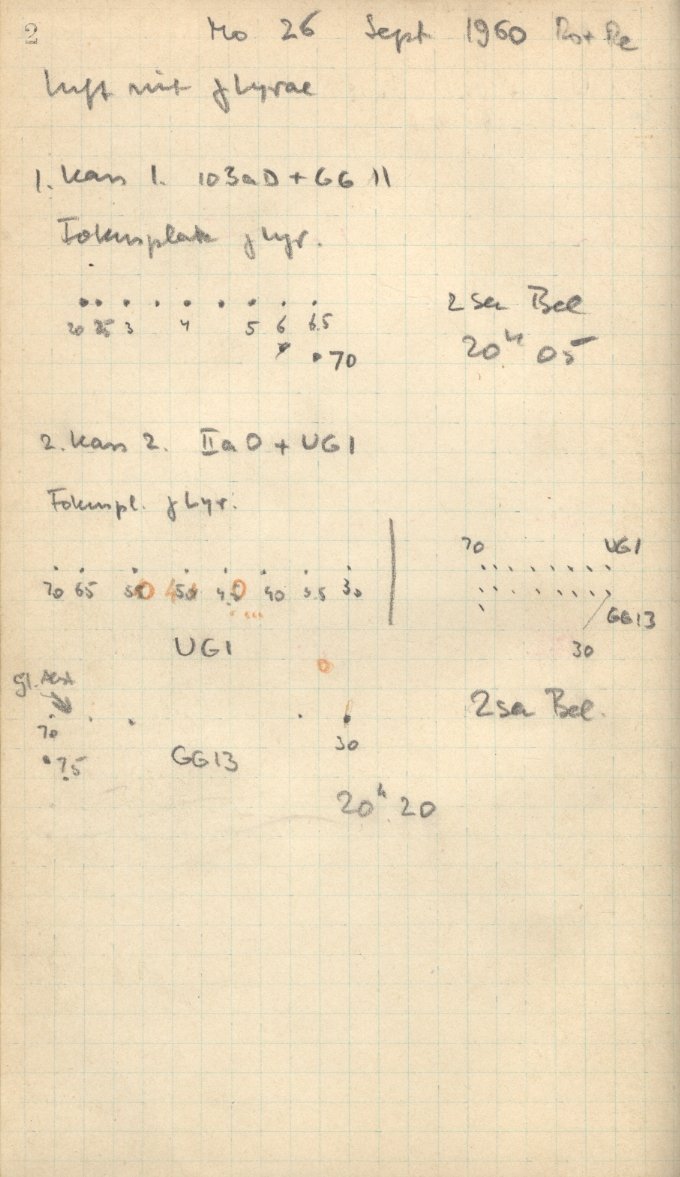 2
Mo 26 Sept 1960 Ro + Re
Luft mit γ Lyrae
1. Kass 1. 103aD + GG 11
Fokusplatte γ Lyr.
20 25 3 4 5 6 6.5
70
2 sec Bel
20h 05
2. Kass 2. IIaO + UG1
Fokuspl. γ Lyr.
70 65 50 45 40 35 30
UG1
70 UG1
GG13
30
gl. Abst
70
75
GG13
30
2 sec Bel.
20h 20